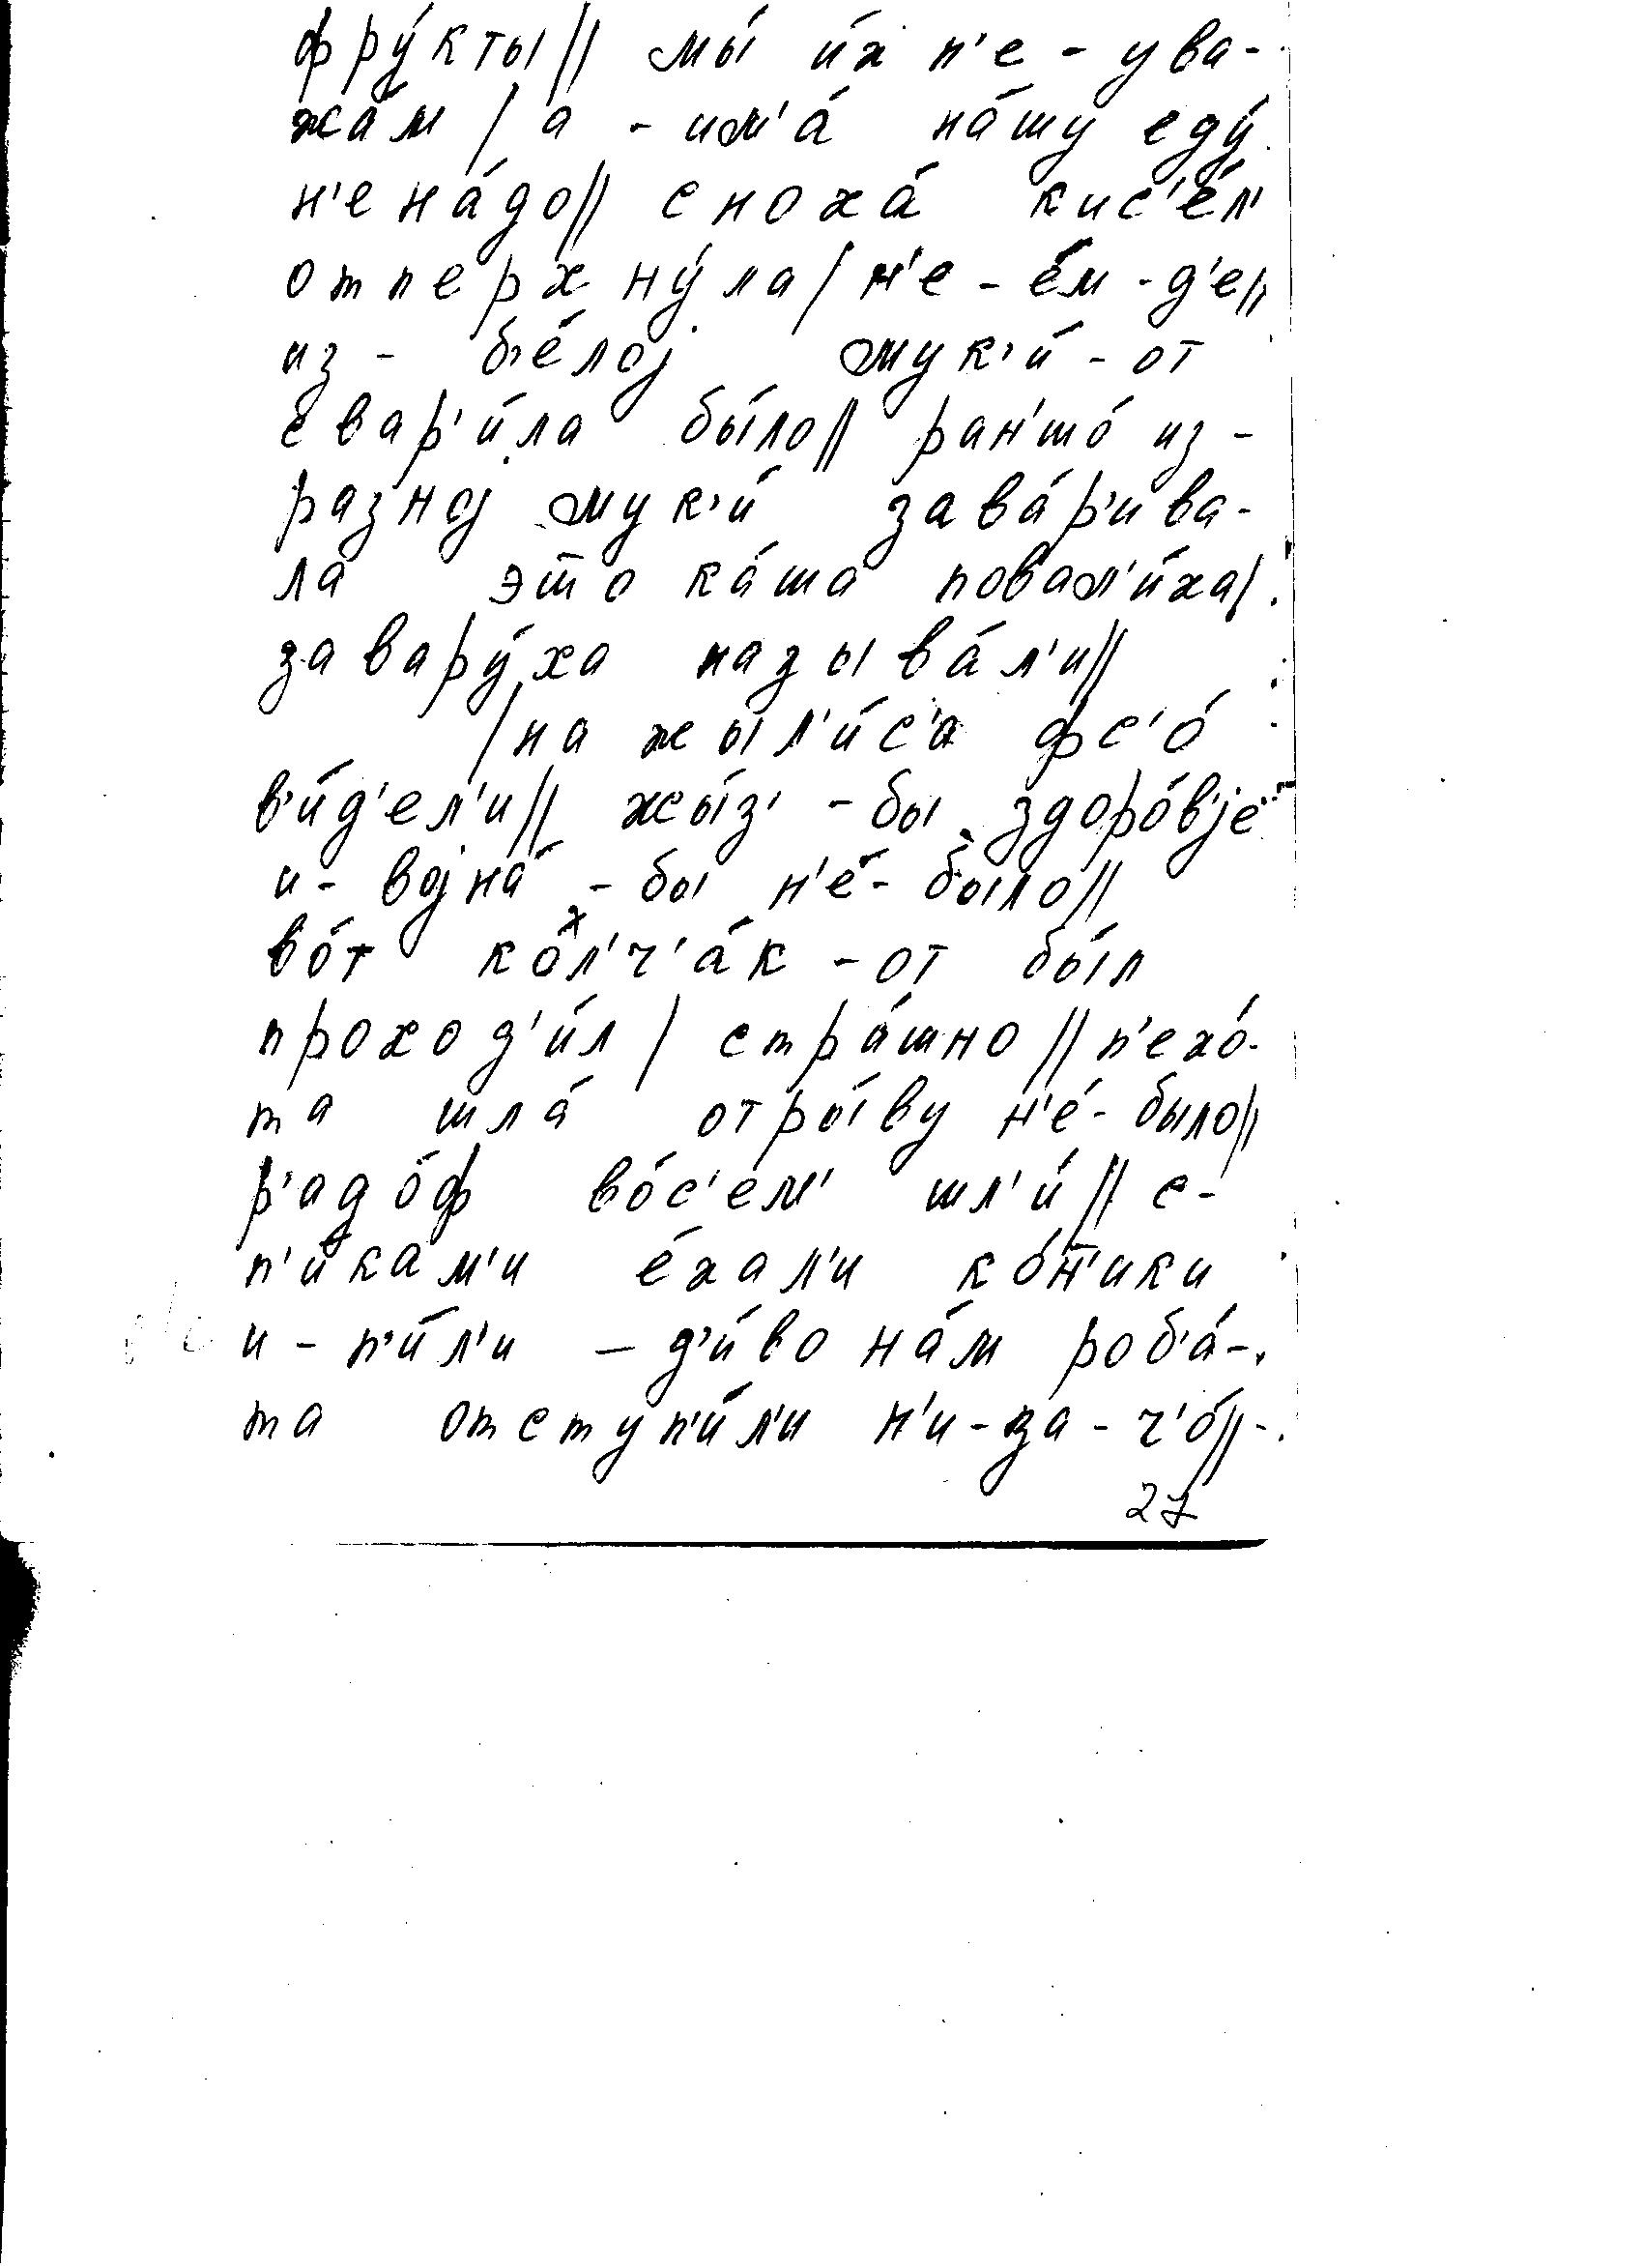 фру́кты// мы́ и́х н'е - ува-
жа́м / а - им'а́ на́шу еду́
н'е на́до// сноха́ кис'е́л'
отперхну́ла / н'е - е́м - д'е//
из - б'е́лој мук'и́ - от
свар'и́ла бы́ло// ран'шо́ из -
разној мук'и́ зава́р'ива-
ла э́то ка́ша повал'и́ха/
завару́ха называ́л'и//
/на жыл'и́с'а фс'о́
в'и́д'ел'и// жы́з' - бы здоро́в'је
и - војна́ - бы н'е́ - было//
во́т кол'ч'а́к - от бы́л
проход'и́л / стра́шно // п'ехо́-
та шла́ отры́ву н'е́ - было//
р'адо́ф во́с'ем' шл'и́ // с -
п'и́кам'и е́хал'и ко́н'ики
и - п'и́л'и – д'и́во на́м роб'а́-
та отступ'и́л'и н'и - за - ч'о́// -
27